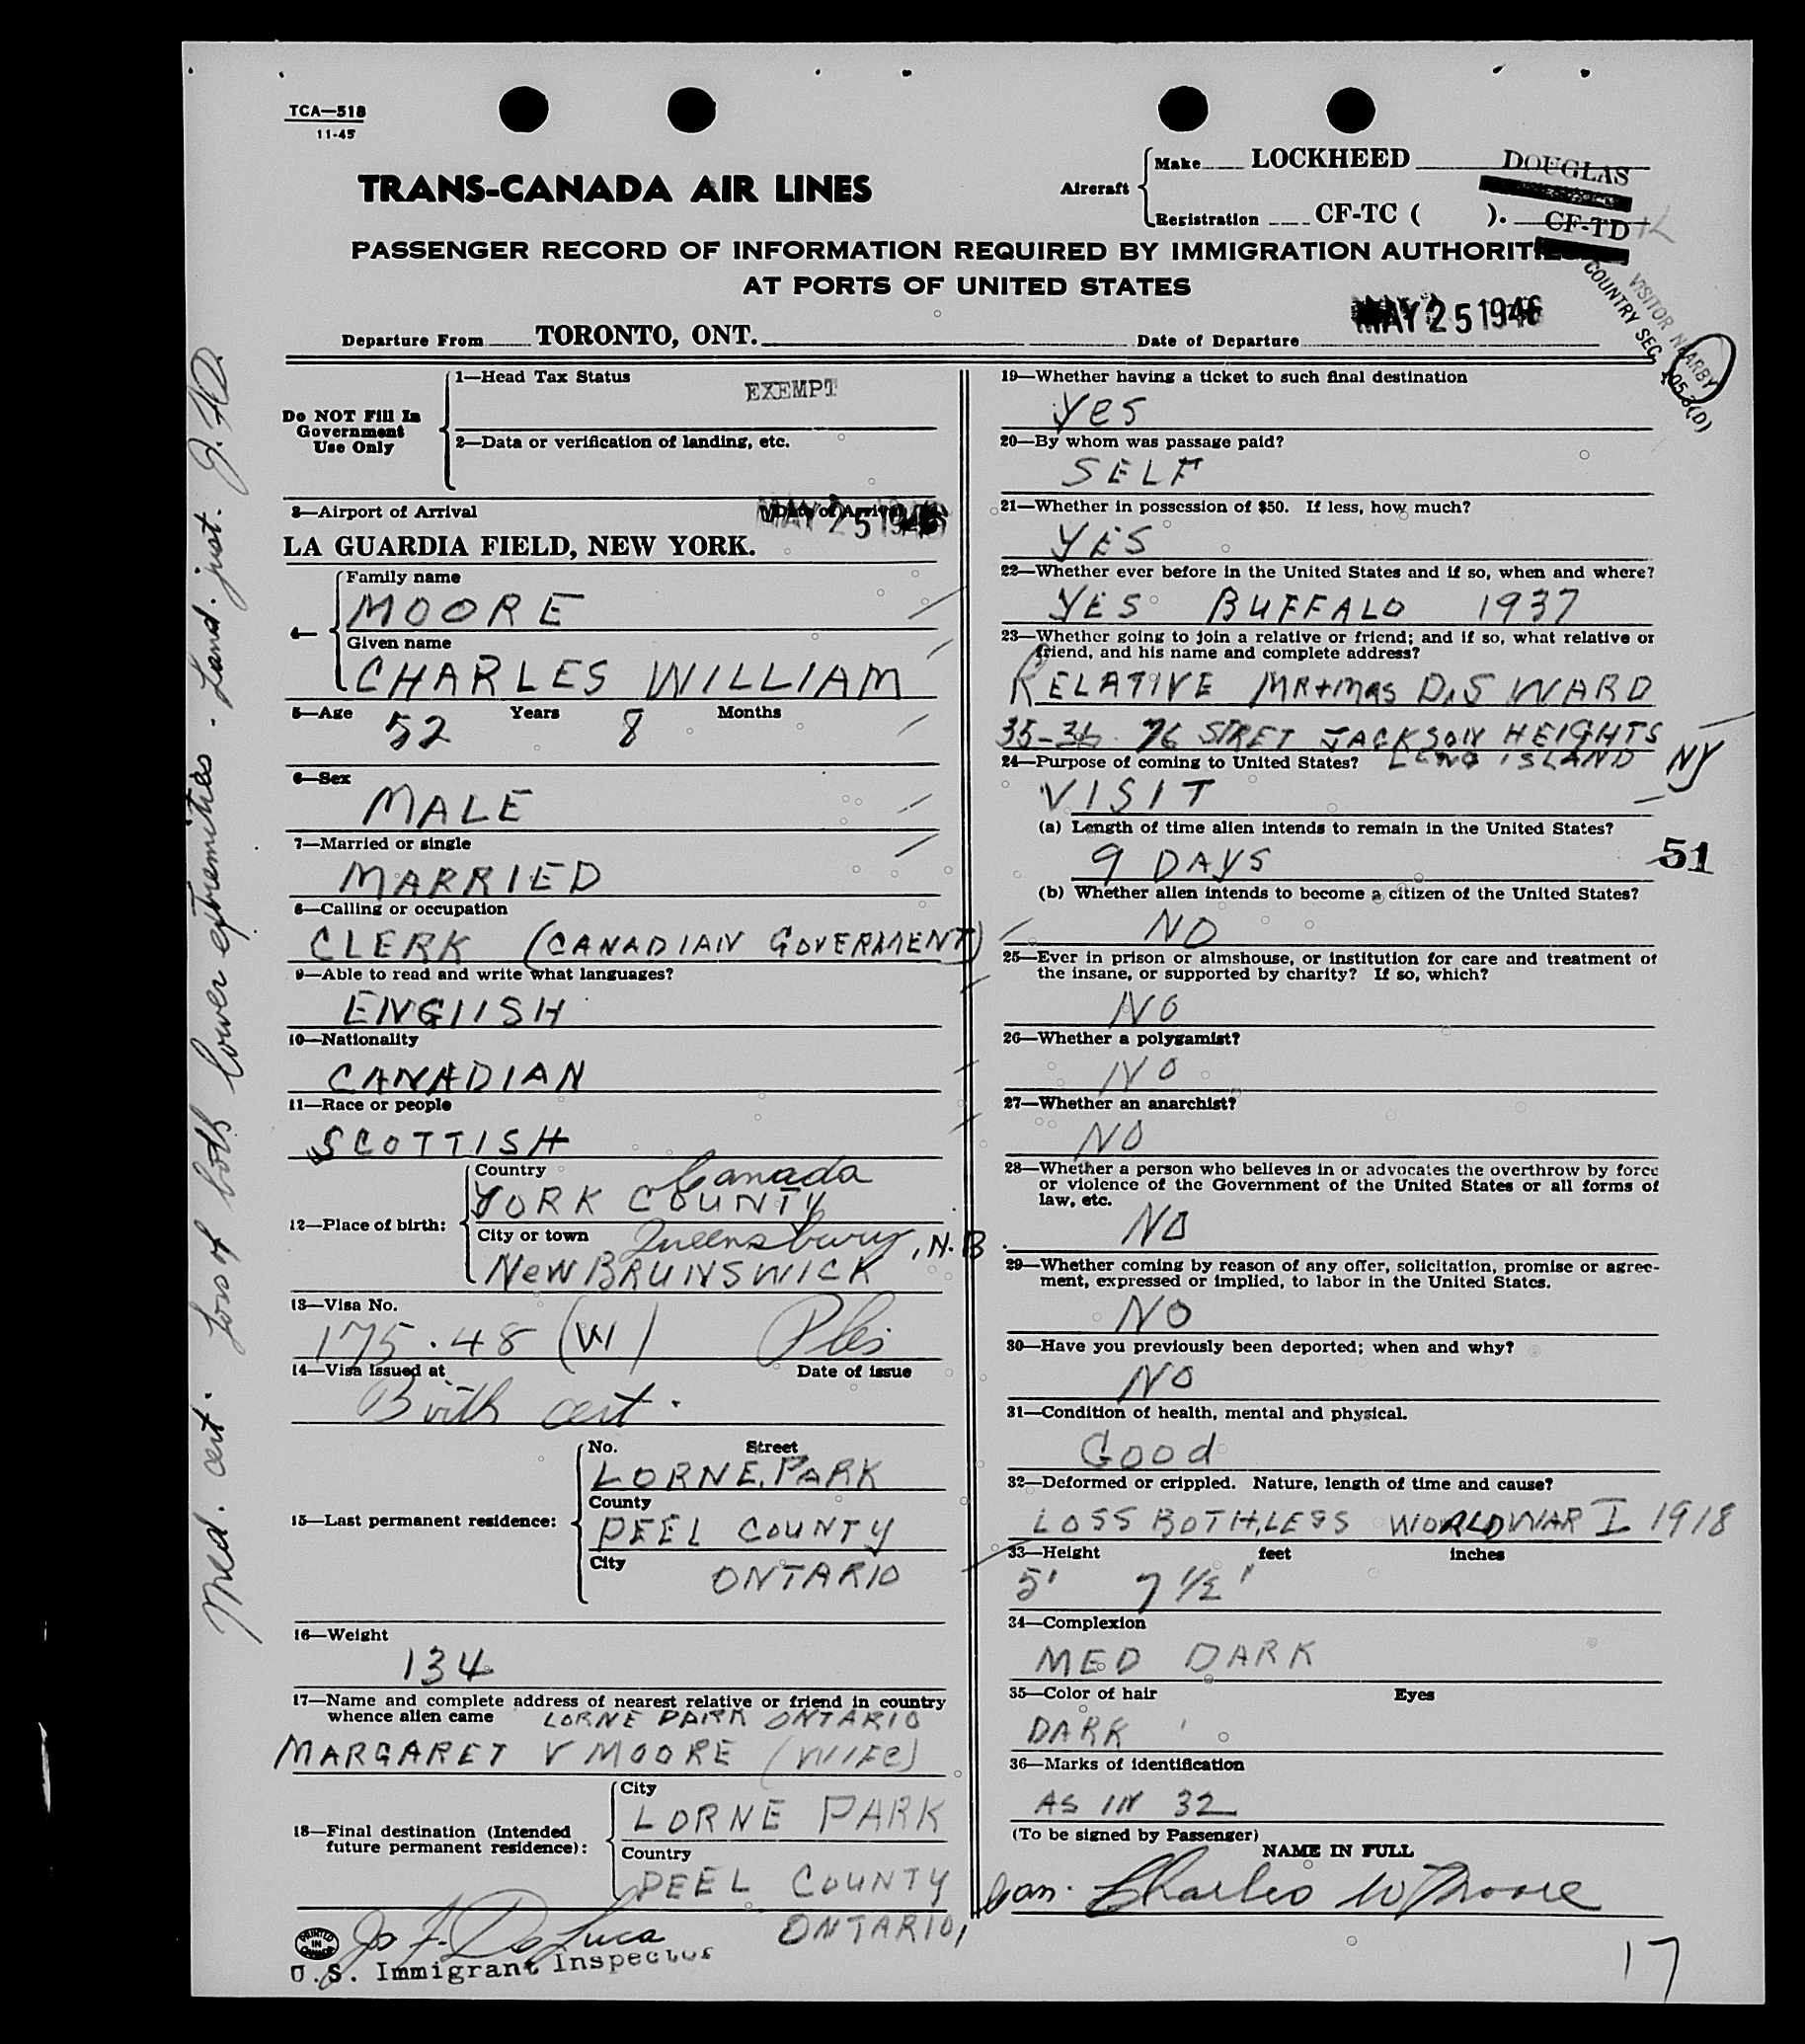 TCA—518
11-45
TRANS-CANADA AIR LINES
Aircraft
Make LOCKHEED DOUGLAS
Registration CF-TC ( ). CF-TD
PASSENGER RECORD OF INFORMATION REQUIRED BY IMMIGRATION
AT PORTS OF UNITED STATES
VISITOR NEARBY
COUNTRY SEC. 105.3(D)
Departure From TORONTO, ONT. Date of Departure MAY 25 1946
Do NOT Fill In
Government
Use Only
1—Head Tax Status EXEMPT
2—Data or verification of landing, etc.
3—Airport of Arrival Date of Arrival MAY 25 1946
LA GUARDIA FIELD, NEW YORK.
4—
Family name
MOORE
Given name
CHARLES WILLIAM
5—Age 52 Years 8 Months
6—Sex
MALE
7—Married or single
MARRIED
8—Calling or occupation
CLERK (CANADIAN GOVERMENT)
9—Able to read and write what languages?
ENGIISH
10—Nationality
CANADIAN
11—Race or people
SCOTTISH
12—Place of birth:
Country Canada
YORK COUNTY
City or town Queensbury, N.B.
NEW BRUNSWICK
13—Visa No.
175.48 (W)
14—Visa issued at Date of issue
Birth cert.
15—Last permanent residence:
No. Street
LORNE PARK
County
PEEL COUNTY
City
ONTARIO
16—Weight
134
17—Name and complete address of nearest relative or friend in country
whence alien came LORNE PARK ONTARIO
MARGARET V MOORE (WIFE)
18—Final destination (Intended
future permanent residence):
City
LORNE PARK
Country
PEEL COUNTY
ONTARIO,
PRINTED IN CANADA
Jo F. De Luca
U.S. Immigrant Inspector
19—Whether having a ticket to such final destination
YES
20—By whom was passage paid?
SELF
21—Whether in possession of $50. If less, how much?
YES
22—Whether ever before in the United States and if so, when and where?
YES BUFFALO 1937
23—Whether going to join a relative or friend; and if so, what relative or
friend, and his name and complete address?
RELATIVE MR+MRS D.S WARD
35-36 76 STRET JACKSON HEIGHTS
LONG ISLAND NY
24—Purpose of coming to United States?
VISIT
(a) Length of time alien intends to remain in the United States?
9 DAYS
51
(b) Whether alien intends to become a citizen of the United States?
NO
25—Ever in prison or almshouse, or institution for care and treatment of
the insane, or supported by charity? If so, which?
NO
26—Whether a polygamist?
NO
27—Whether an anarchist?
NO
28—Whether a person who believes in or advocates the overthrow by force
or violence of the Government of the United States or all forms of
law, etc.
NO
29—Whether coming by reason of any offer, solicitation, promise or agree-
ment, expressed or implied, to labor in the United States.
NO
30—Have you previously been deported; when and why?
NO
31—Condition of health, mental and physical.
Good
32—Deformed or crippled. Nature, length of time and cause?
LOSS BOTH LEGS WORLD WAR I 1918
33—Height feet inches
5' 7 1/2'
34—Complexion
MED DARK
35—Color of hair Eyes
DARK
36—Marks of identification
AS IN 32
(To be signed by Passenger)
NAME IN FULL
Can. Charles W Moore
17
Med. cert. Loss of both lower extremities. Land. just. J.F.D.